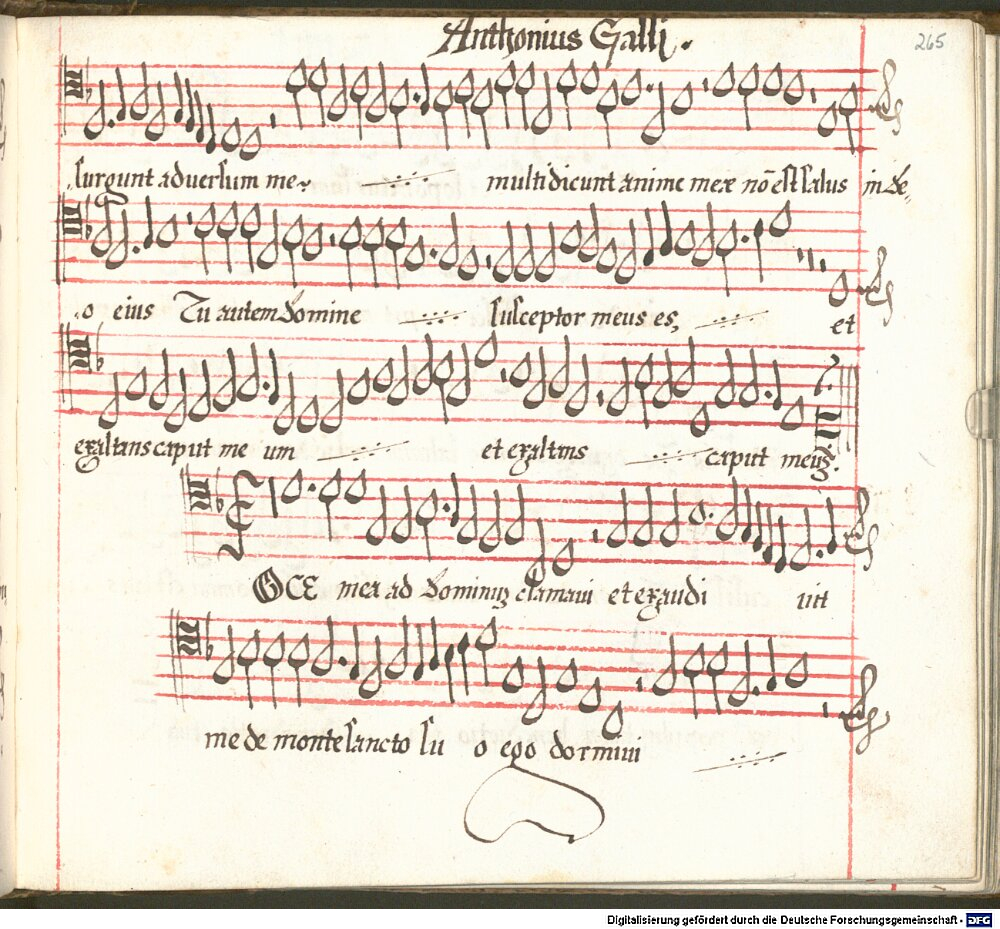 Anthonius Galli.
265
surgunt adversum me, multi dicunt anime mee nō est salus in de,
o eius Tu autem domine susceptor meus es, et
exaltans caput me um et exaltans caput meuȝ.
VOCE mea ad dominuȝ clamavi et exaudi vit
me de monte sancto su o ego dormivi
Digitalisierung gefördert durch die Deutsche Forschungsgemeinschaft - DFG